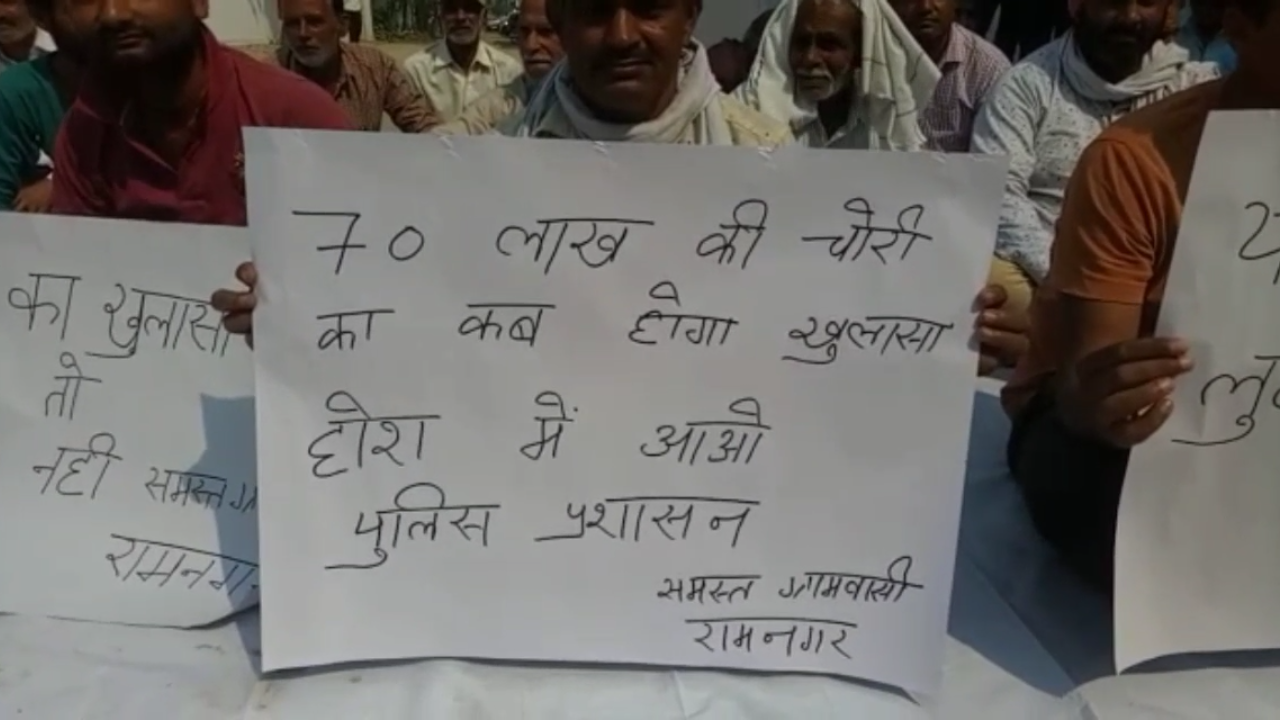 का खुलासा
तो
नही समस्त
रामनग
70 लाख की चोरी
का कब होगा खुलासा
होश में आओ
पुलिस प्रशासन
समस्त ग्रामवासी
रामनगर